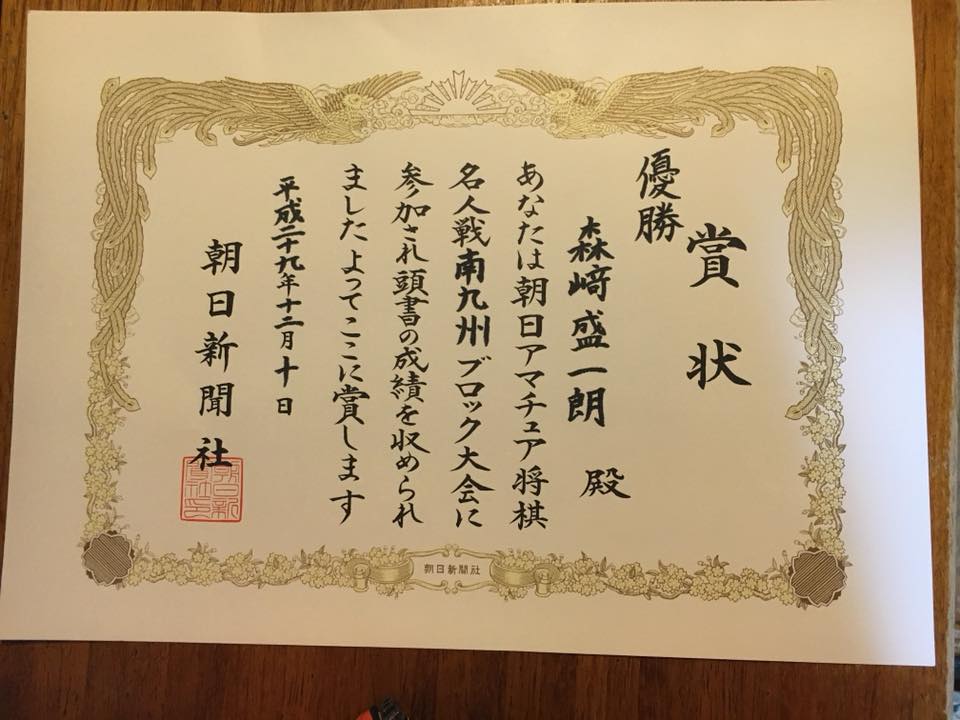 賞状
優勝
森﨑盛一朗 殿
あなたは朝日アマチュア将棋
名人戦南九州ブロック大会に
参加され頭書の成績を収められ
ました よってここに賞します
平成二十九年十二月十日
朝日新聞社
朝日新聞社